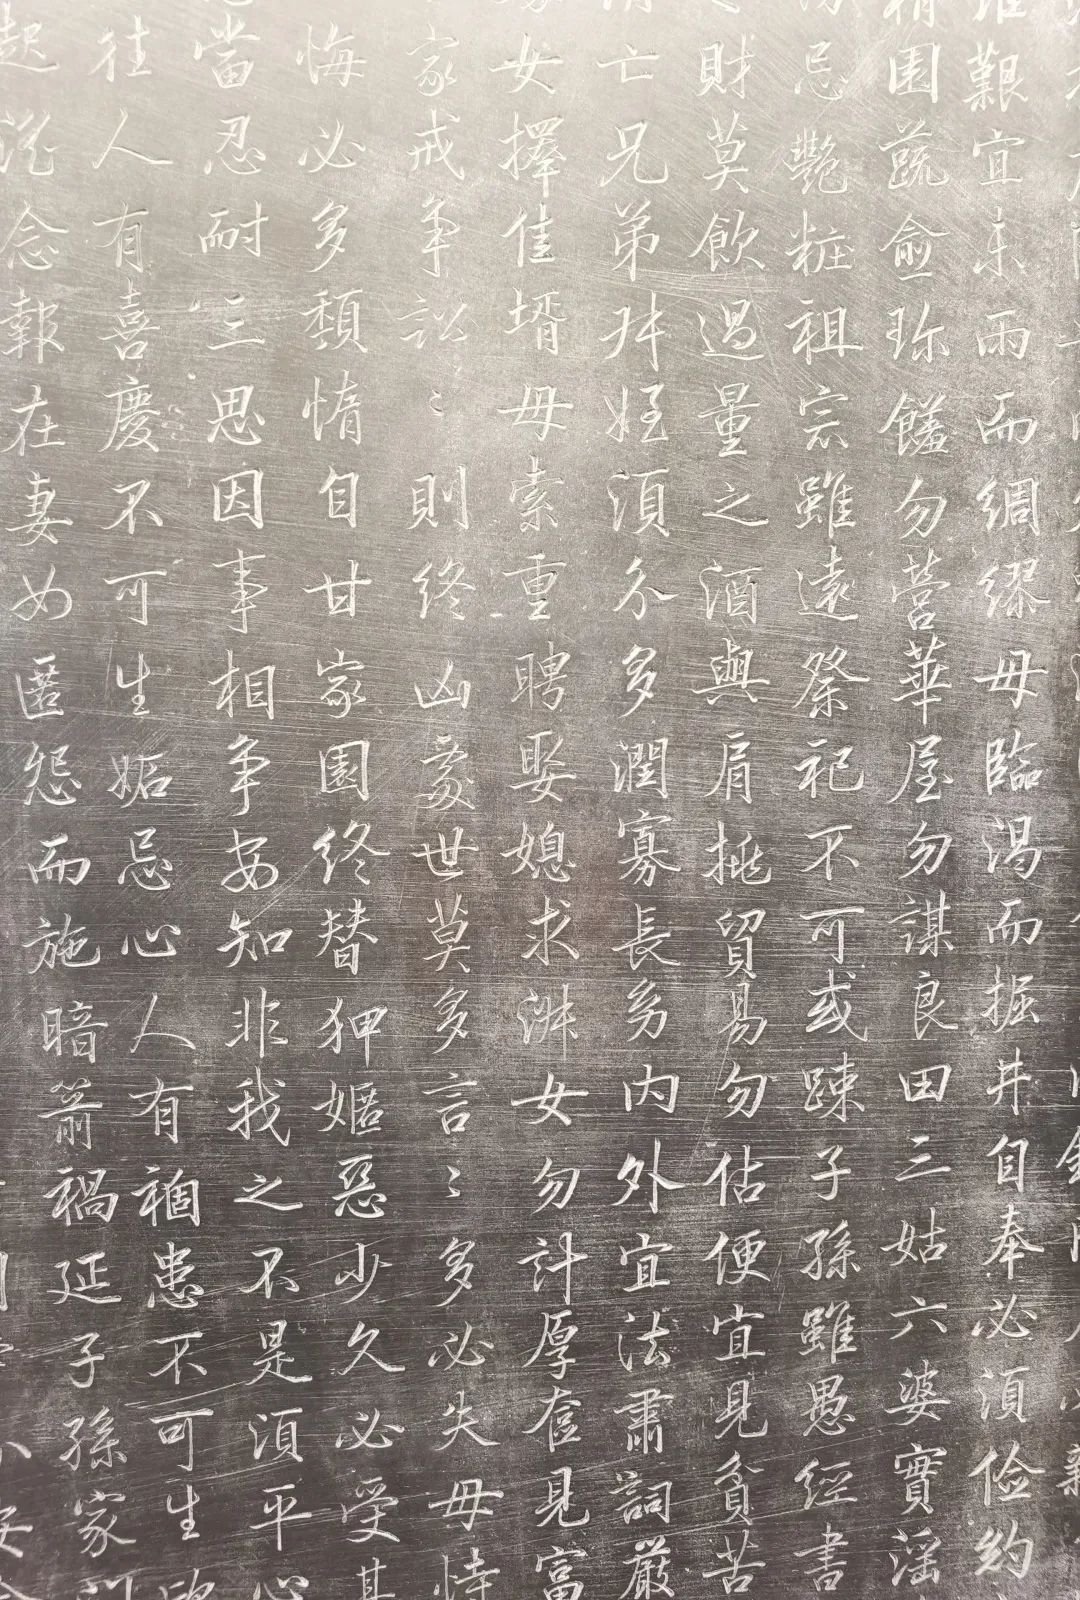 艱宜未雨而綢繆毋臨渴而掘井自奉必須俭約
園蔬愈珎饈勿營華屋勿謀良田三姑六婆實滛
忌艷粧祖宗雖遠祭祀不可或踈子孫雖愚經書
財莫飲過量之酒與肩挑貿易勿估便宜見貧苦
亡兄弟叔姪須分多潤寡長幼内外宜法肅詞嚴
女擇佳壻毋索重聘娶媳求淑女勿計厚奩見富
家戒爭訟〻則終凶處世莫多言〻多必失毋恃
悔必多頹惰自甘家園終替狎嫟惡少久必受其
當忍耐三思因事相爭安知非我之不是須平心
往人有喜慶不可生妬忌心人有禍患不可生
起從念報在妻女匿怨而施暗箭禍延子孫家